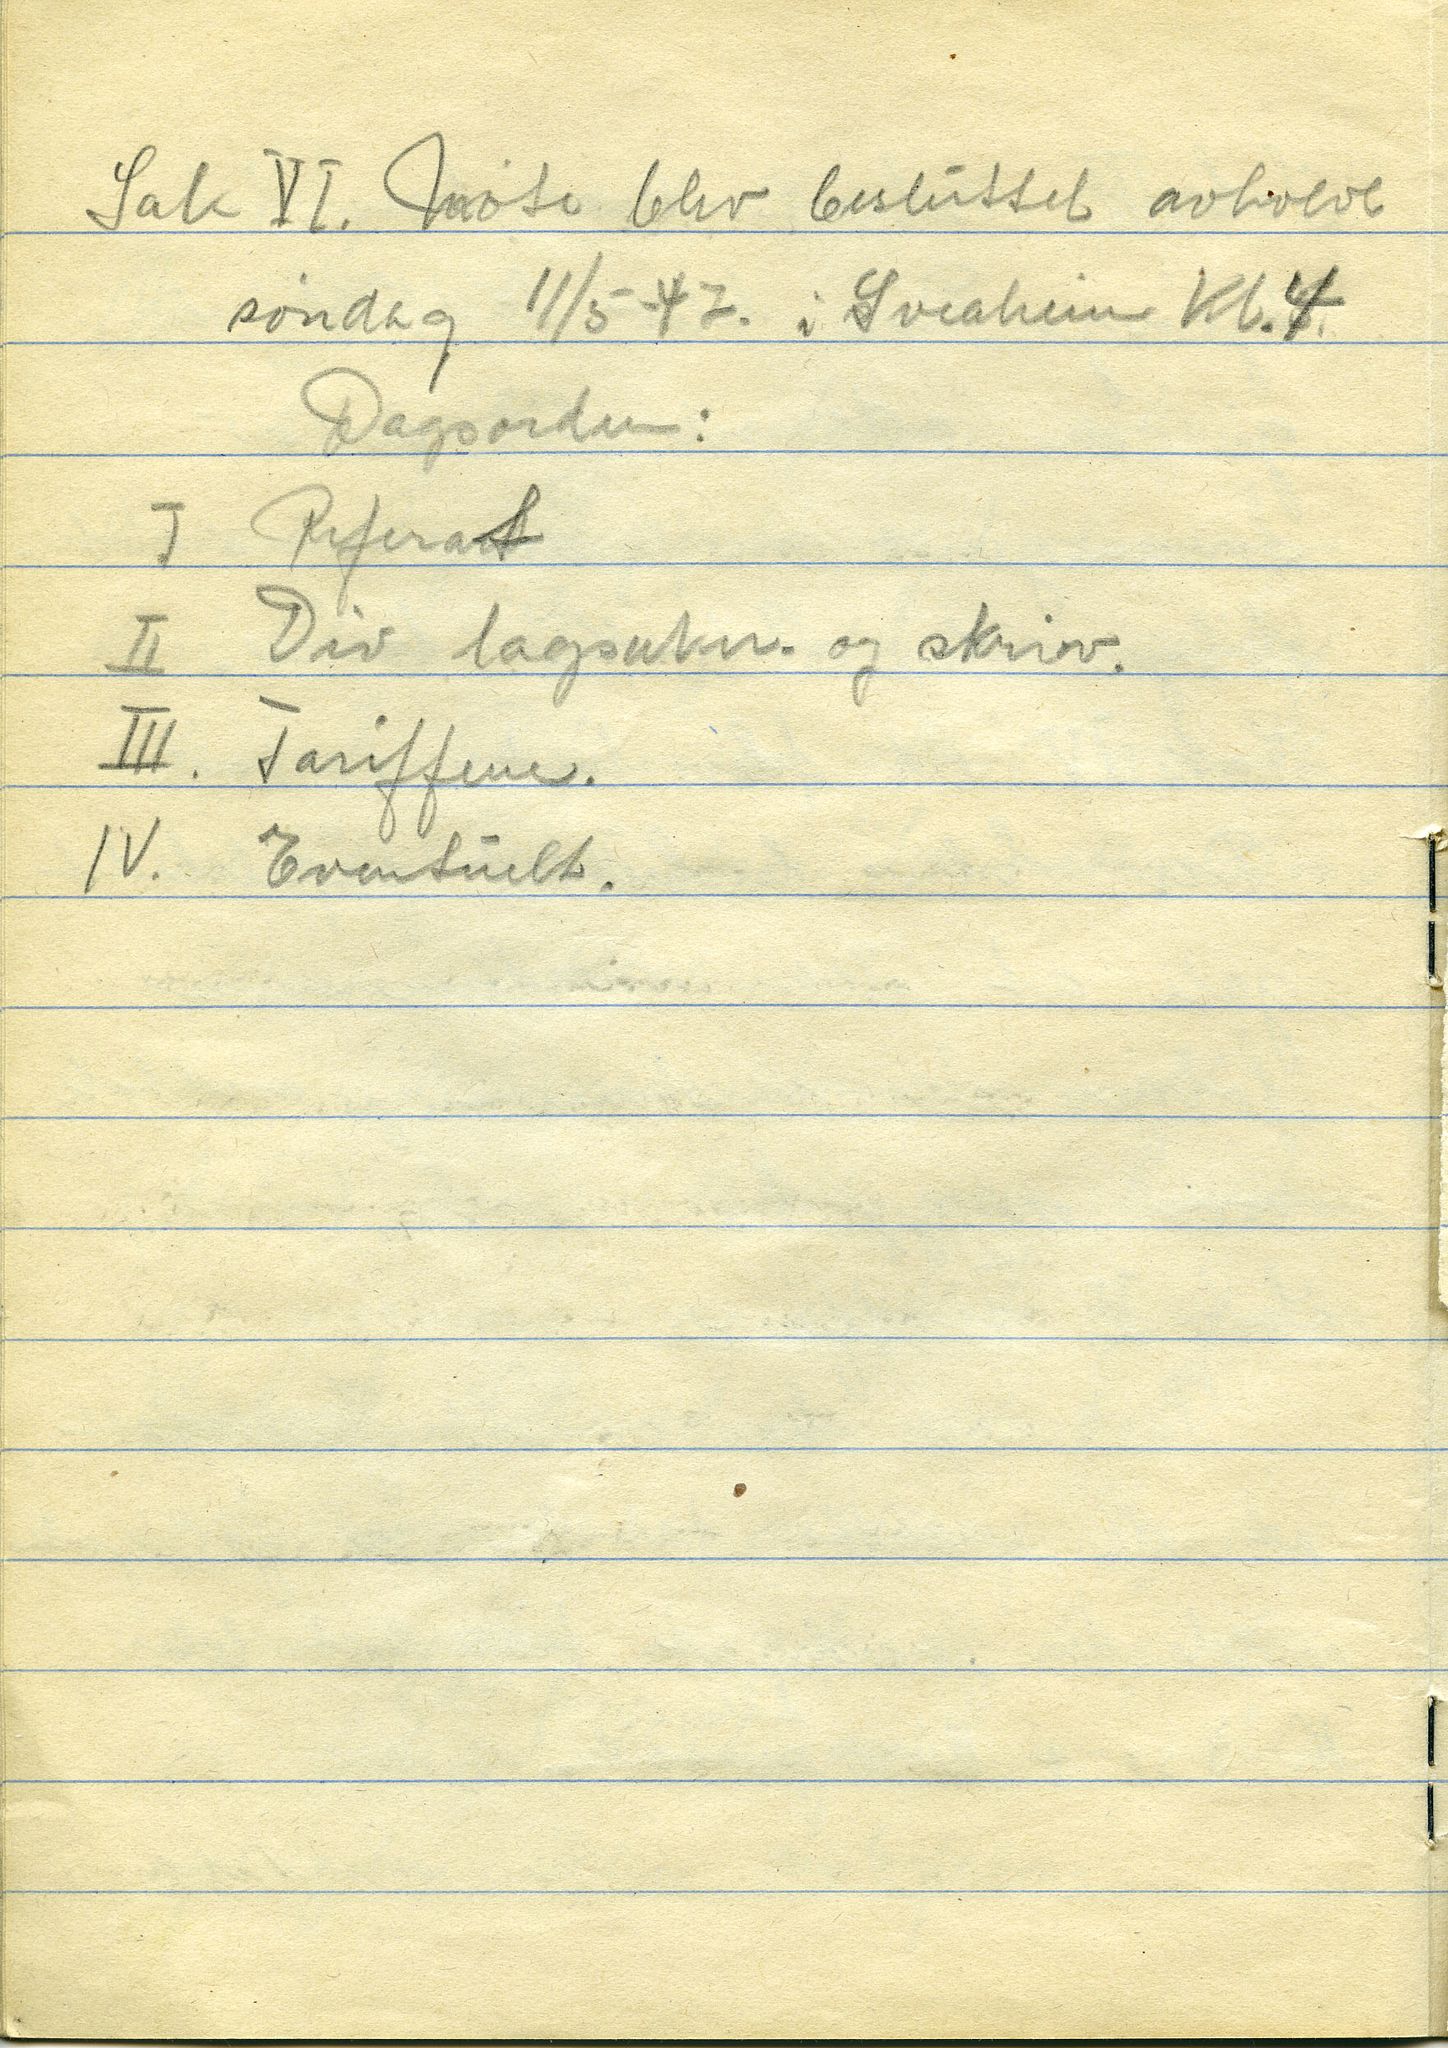 Sak VI. Møte blev besluttet avholdt
søndag 11/5-47. i Sveaheim Kl. 4.
Dagsorden:
I Referat
II Div lagssaker. og skriv.
III. Tariffene.
IV. Eventuelt.